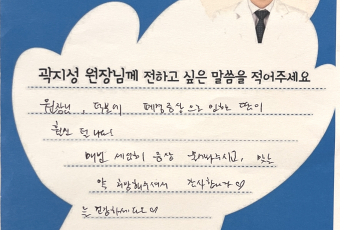 곽지성 원장님께 전하고 싶은 말씀을 적어주세요
원장님, 덕분에 폐경증상으로 인하는 땀이
훨씬 덜 나요!
매번 세심히 증상 봐주시고, 맞는
약 처방해주셔서 감사합니다♡
늘 건강하세요♡